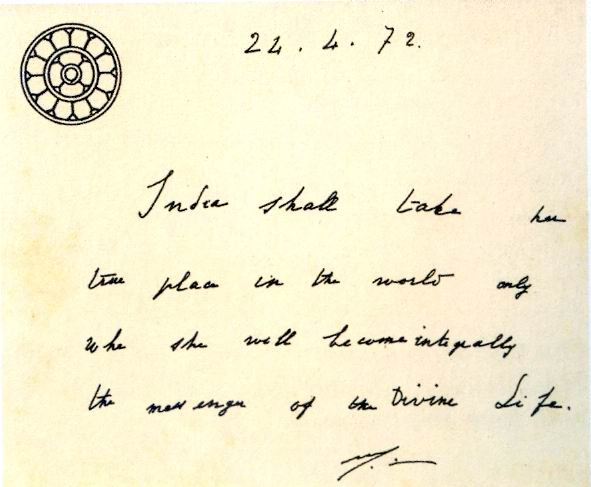 24.4.72.
India shall take her
true place in the world only
whe she will become integrally
the messenger of the Divine Life.